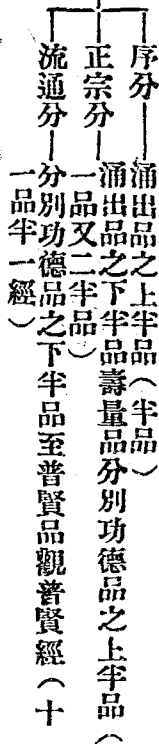 序分——涌出品之上半品(半品)
正宗分——涌出品之下半品壽量品分別功德品之上半品(
一品又二半品)
流通分——分別功德品之下半品至普賢品觀普賢經(十
一品半一經)